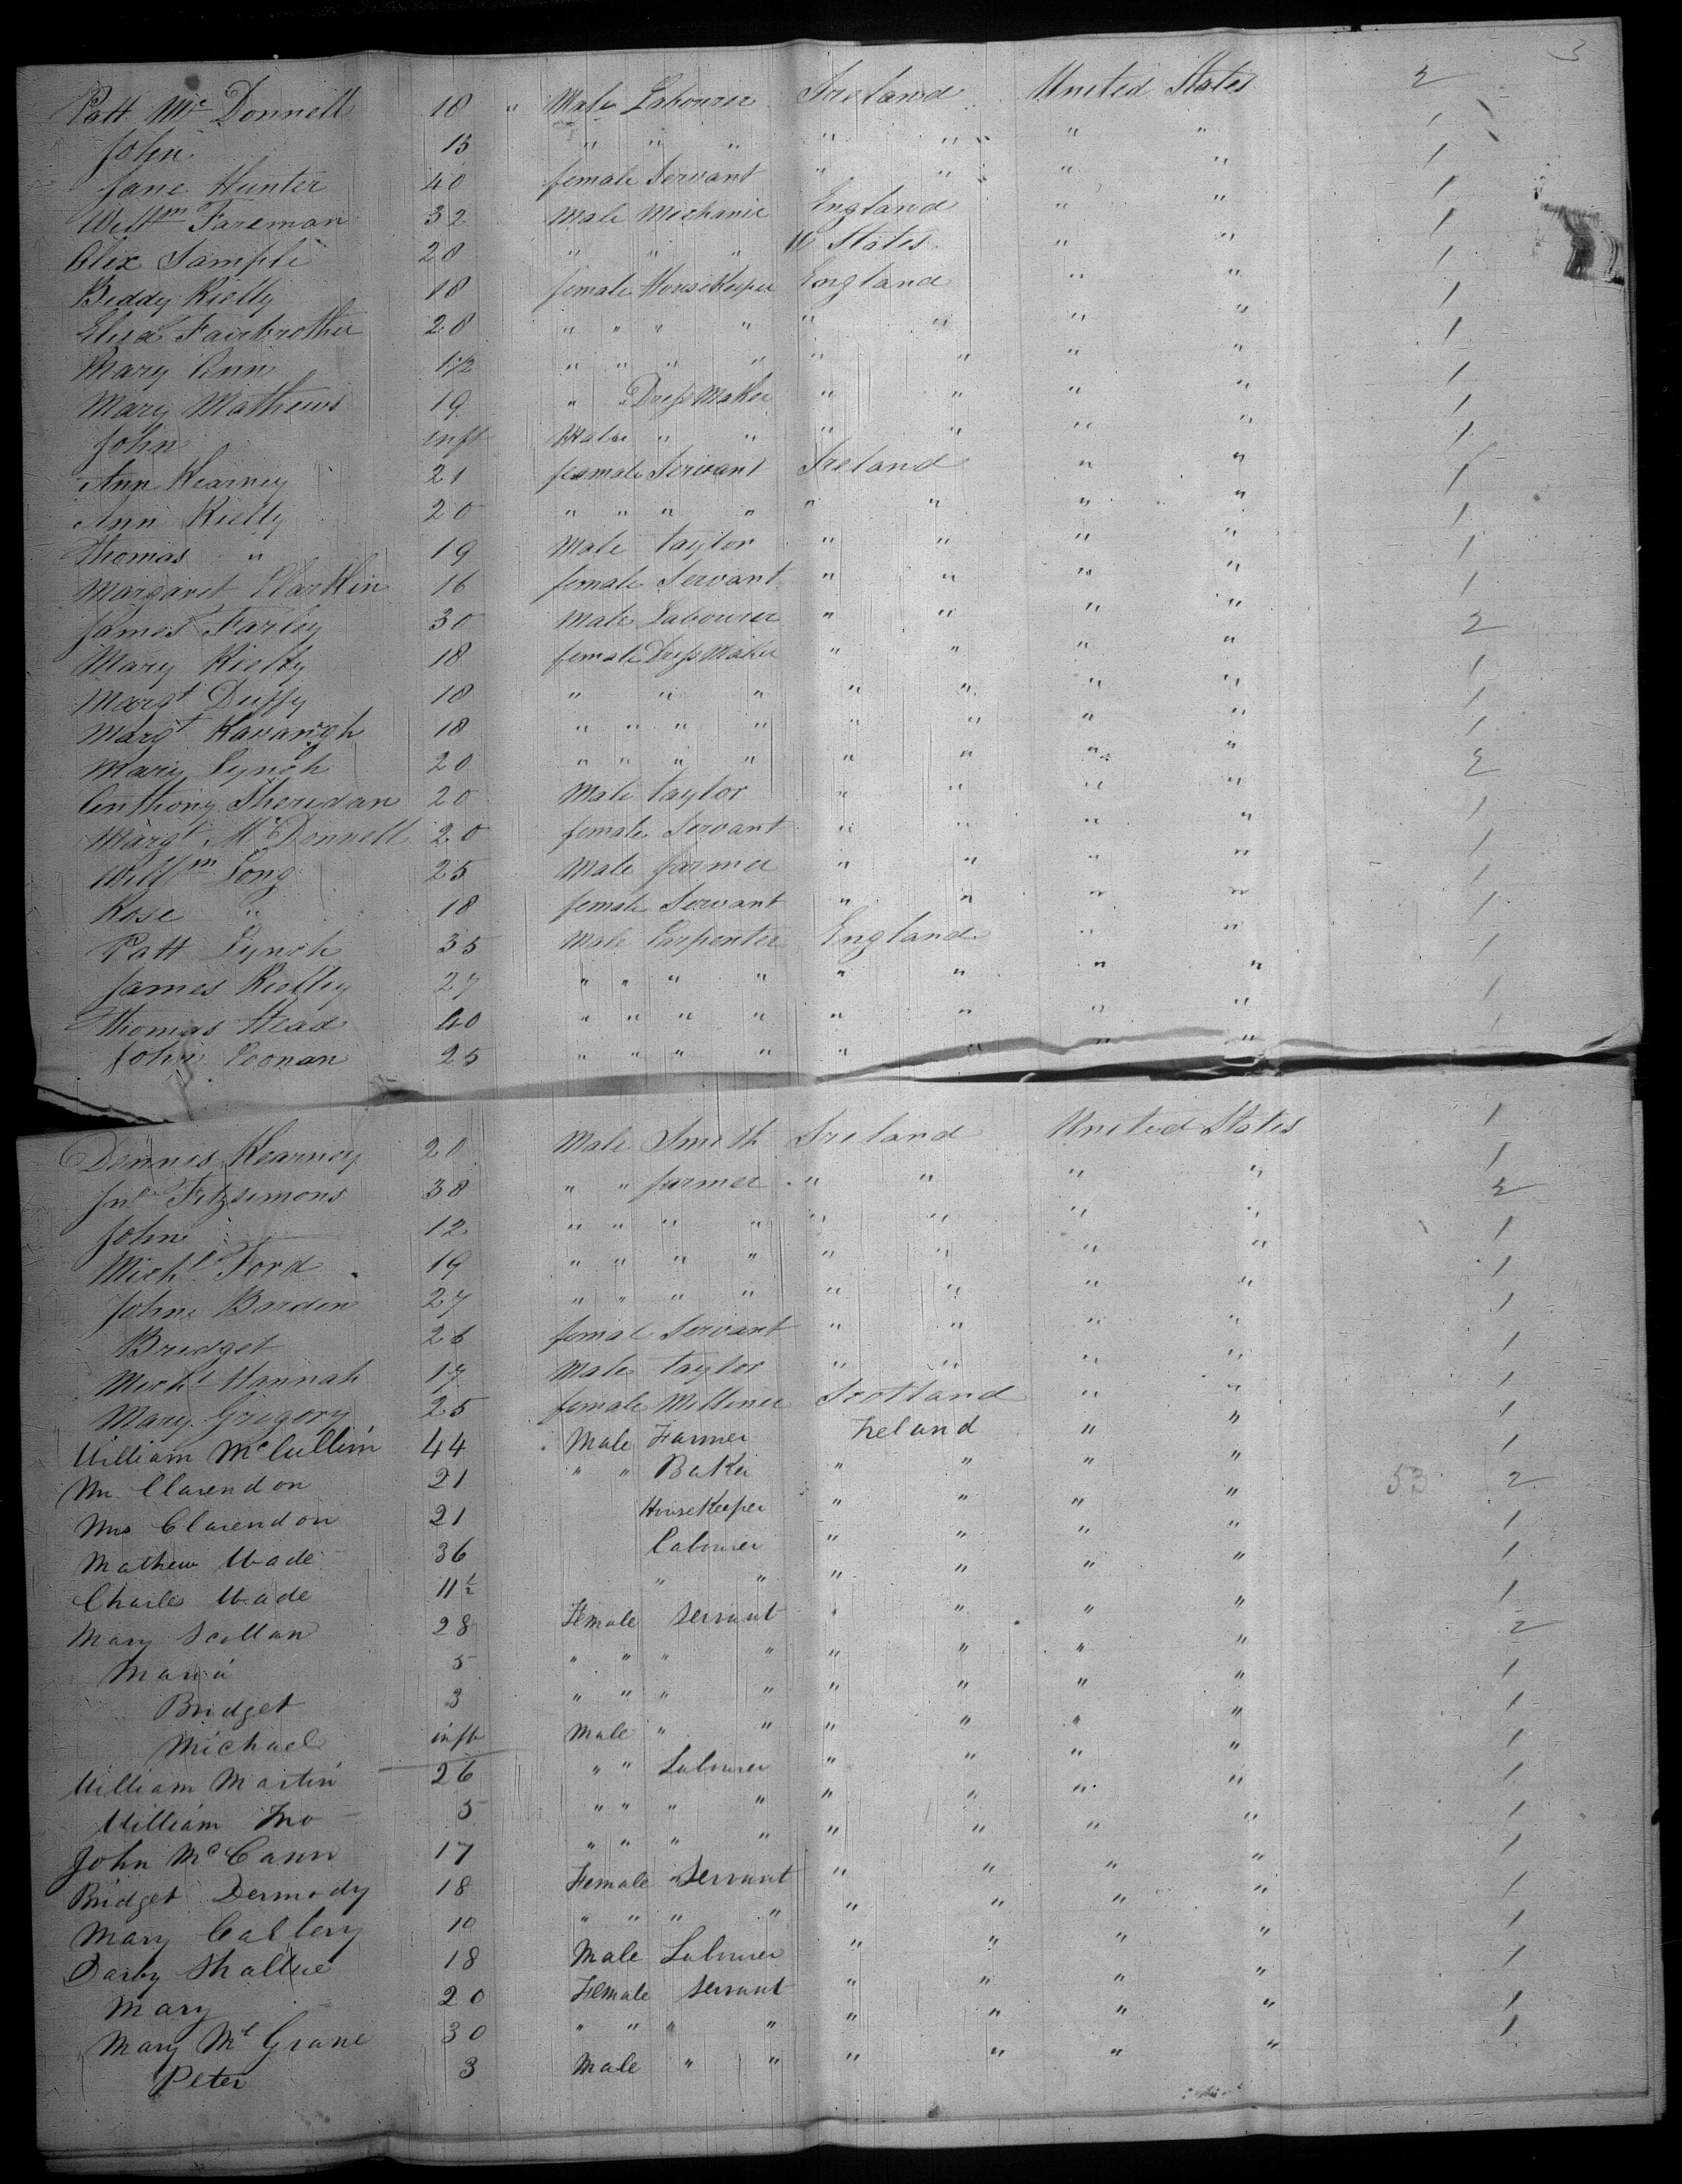 3
Patt Mc Donnell 18 " Male Labourer Ireland United States 2
John 13 " " " " " " " 1
Jane Hunter 40 female Servant " " " " 1
Willm Fareman 32 Male Mechanic England " " 1
Alex Sample 28 " " " U States " " 1
Biddy Rielly 18 female HouseKeeper England " " 1
Eliza Fairbrother 28 " " " " " " " " 1
Mary Ann 1 1/2 " " " " " " " " 1
Mary Mathews 19 " " Dress Maker " " " " 1
John inft Male " " " " " " 1
Ann Kearney 21 female Servant Ireland " " 1
Ann Rielly 20 " " " " " " " " 1
Thomas " 19 Male taylor " " " " 1
Margaret Clarkin 16 female Servant " " " " 1
James Farley 30 Male Labourer " " " " 1
Mary Rielly 18 female Dress Maker " " " " 2
Margt Duffy 18 " " " " " " " 1
Margt Kavanagh 18 " " " " " " " " 1
Mary Lynch 20 " " " " " " " " 1
Anthony Sheridan 20 Male taylor " " " " 2
Margt Mc Donnell 20 female Servant " " " " 1
Willm Long 25 Male farmer " " " " 1
Rose " 18 female Servant " " " " 1
Patt Lynch 35 Male Carpenter England " " 1
James Rielly 27 " " " " " " " " 1
Thomas Head 40 " " " " " " " " 1
John Coonan 25 " " " " " " " " 1
Dennis Kearney 20 Male Smith Ireland United States 1
Jno Fitzsimons 38 " " farmer " " " " 1
John 12 " " " " " " " " 2
Michl Ford 19 " " " " " " " " 1
John Barden 27 " " " " " " " " 1
Bridget 26 femal Servant " " " " 1
Michl Hannah 17 Male taylor " " " " 1
Mary Gregory 25 female Milliner Scotland " " 1
William McCullim 44 Male Farmer Ireland " " 1
Mr Clarendon 21 " " Baker " " " " 1
Mrs Clarendon 21 HouseKeeper " " " " 53 2
Mathew Wade 36 Labourer " " " " 1
Charles Wade 11 1/2 " " " " " " 1
Mary Scollan 28 Female Servant " " " " 1
Maria 5 " " " " " " " " 2
Bridget 3 " " " " " " " " 1
Michael inft Male " " " " " " 1
William Martin 26 " " Labourer " " " " 1
William Jno 5 " " " " " " " " 1
John McCann 17 " " " " " " " " 1
Bridget Dermody 18 Female " Servant " " " " 1
Mary 10 " " " " " " " " 1
Darby Shallue 18 Male Labourer " " " " 1
Mary 20 Female Servant " " " " 1
Mary Mc Grane 30 " " " " " " " " 1
Peter 3 Male " " " " " " 1